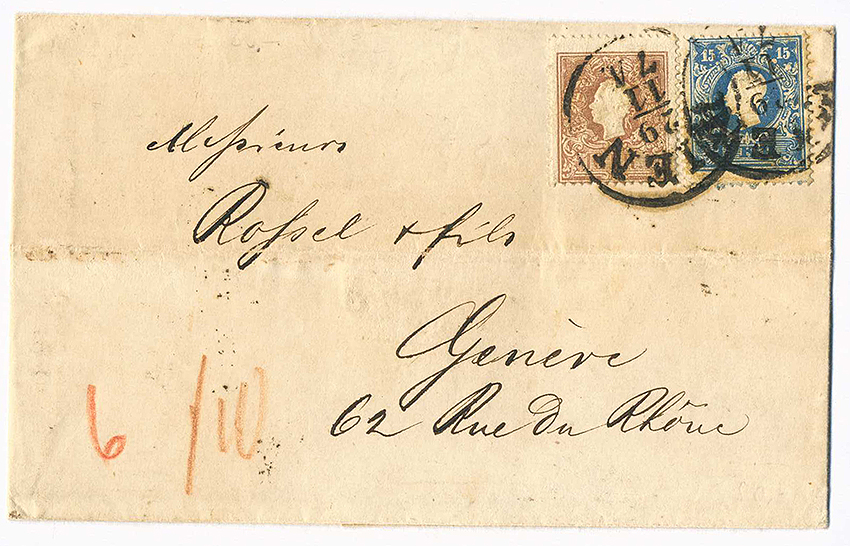 15 15
WIEN
29
11
7A.
Messieurs
Rossel & fils
Genève
62 Rue du Rhône
6 /10